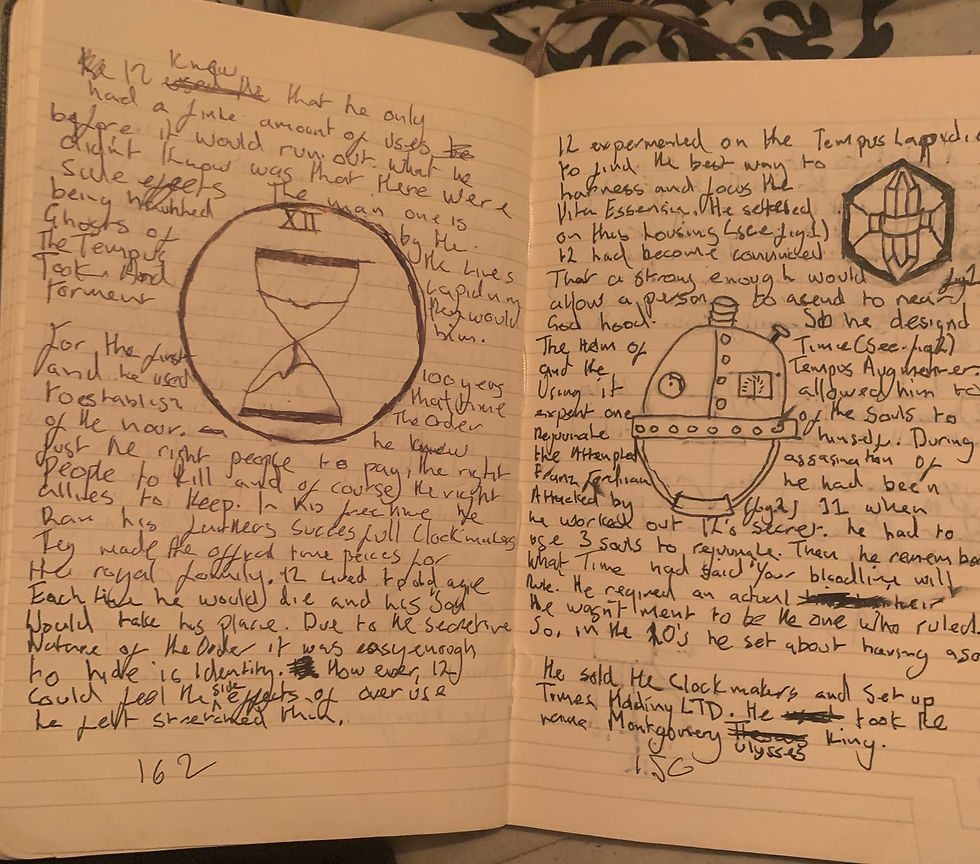 12 Knew that he only
had a finite amount of uses
before it would run out. What he
didnt Know was that there were
side effects The man one is
being haunhted by the
Ghosts of the lives
The Tempus Lapidum
Took. And they would
torment him.
XII
For the first 100 years
and he used that time
to establish The Order
of the hour. he knew
Just the right people to pay, the right
people to kill and of course the right
allies to keep. In his free time he
Ran his fathers succesfull Clockmakers
They made the offical time peices for
the royal family. 12 lived to old age
Each time he would die and his "son"
Would take his place. Due to the secretive
Nature of the Order it was easy enough
to hide is Identity. How ever, 12
Could feel the side effects of over use
he felt stretched thin.
162
12 expermented on the Tempus Lapid
to find the best way to
harness and focus the
Vita Essensia. He setteled
on this housing (see fig 1)
12 had become convinced
That a strong enough would fig 1
allow a person to asend to near
God hood. So he designd
The Helm of Time (See fig 2)
and the Tempus Augmenter.
Using it allowed him to
expent one of the souls to
Rejuvinate himself. During
the Attempted assasination of
Franz Ferdinan he had been
Attacked by (fig 2) 11 when
he worked out 12's secret. he had to
use 3 souls to rejuvinate. Then he remem
what Time had said "Your bloodline will
rule. He reqired an actual heir
He wasn't ment to be the one who ruled.
So, in the 20's he set about having aso
He sold the Clockmakers and set up
Times LTD. He took the
name Montgomery ulysses King.